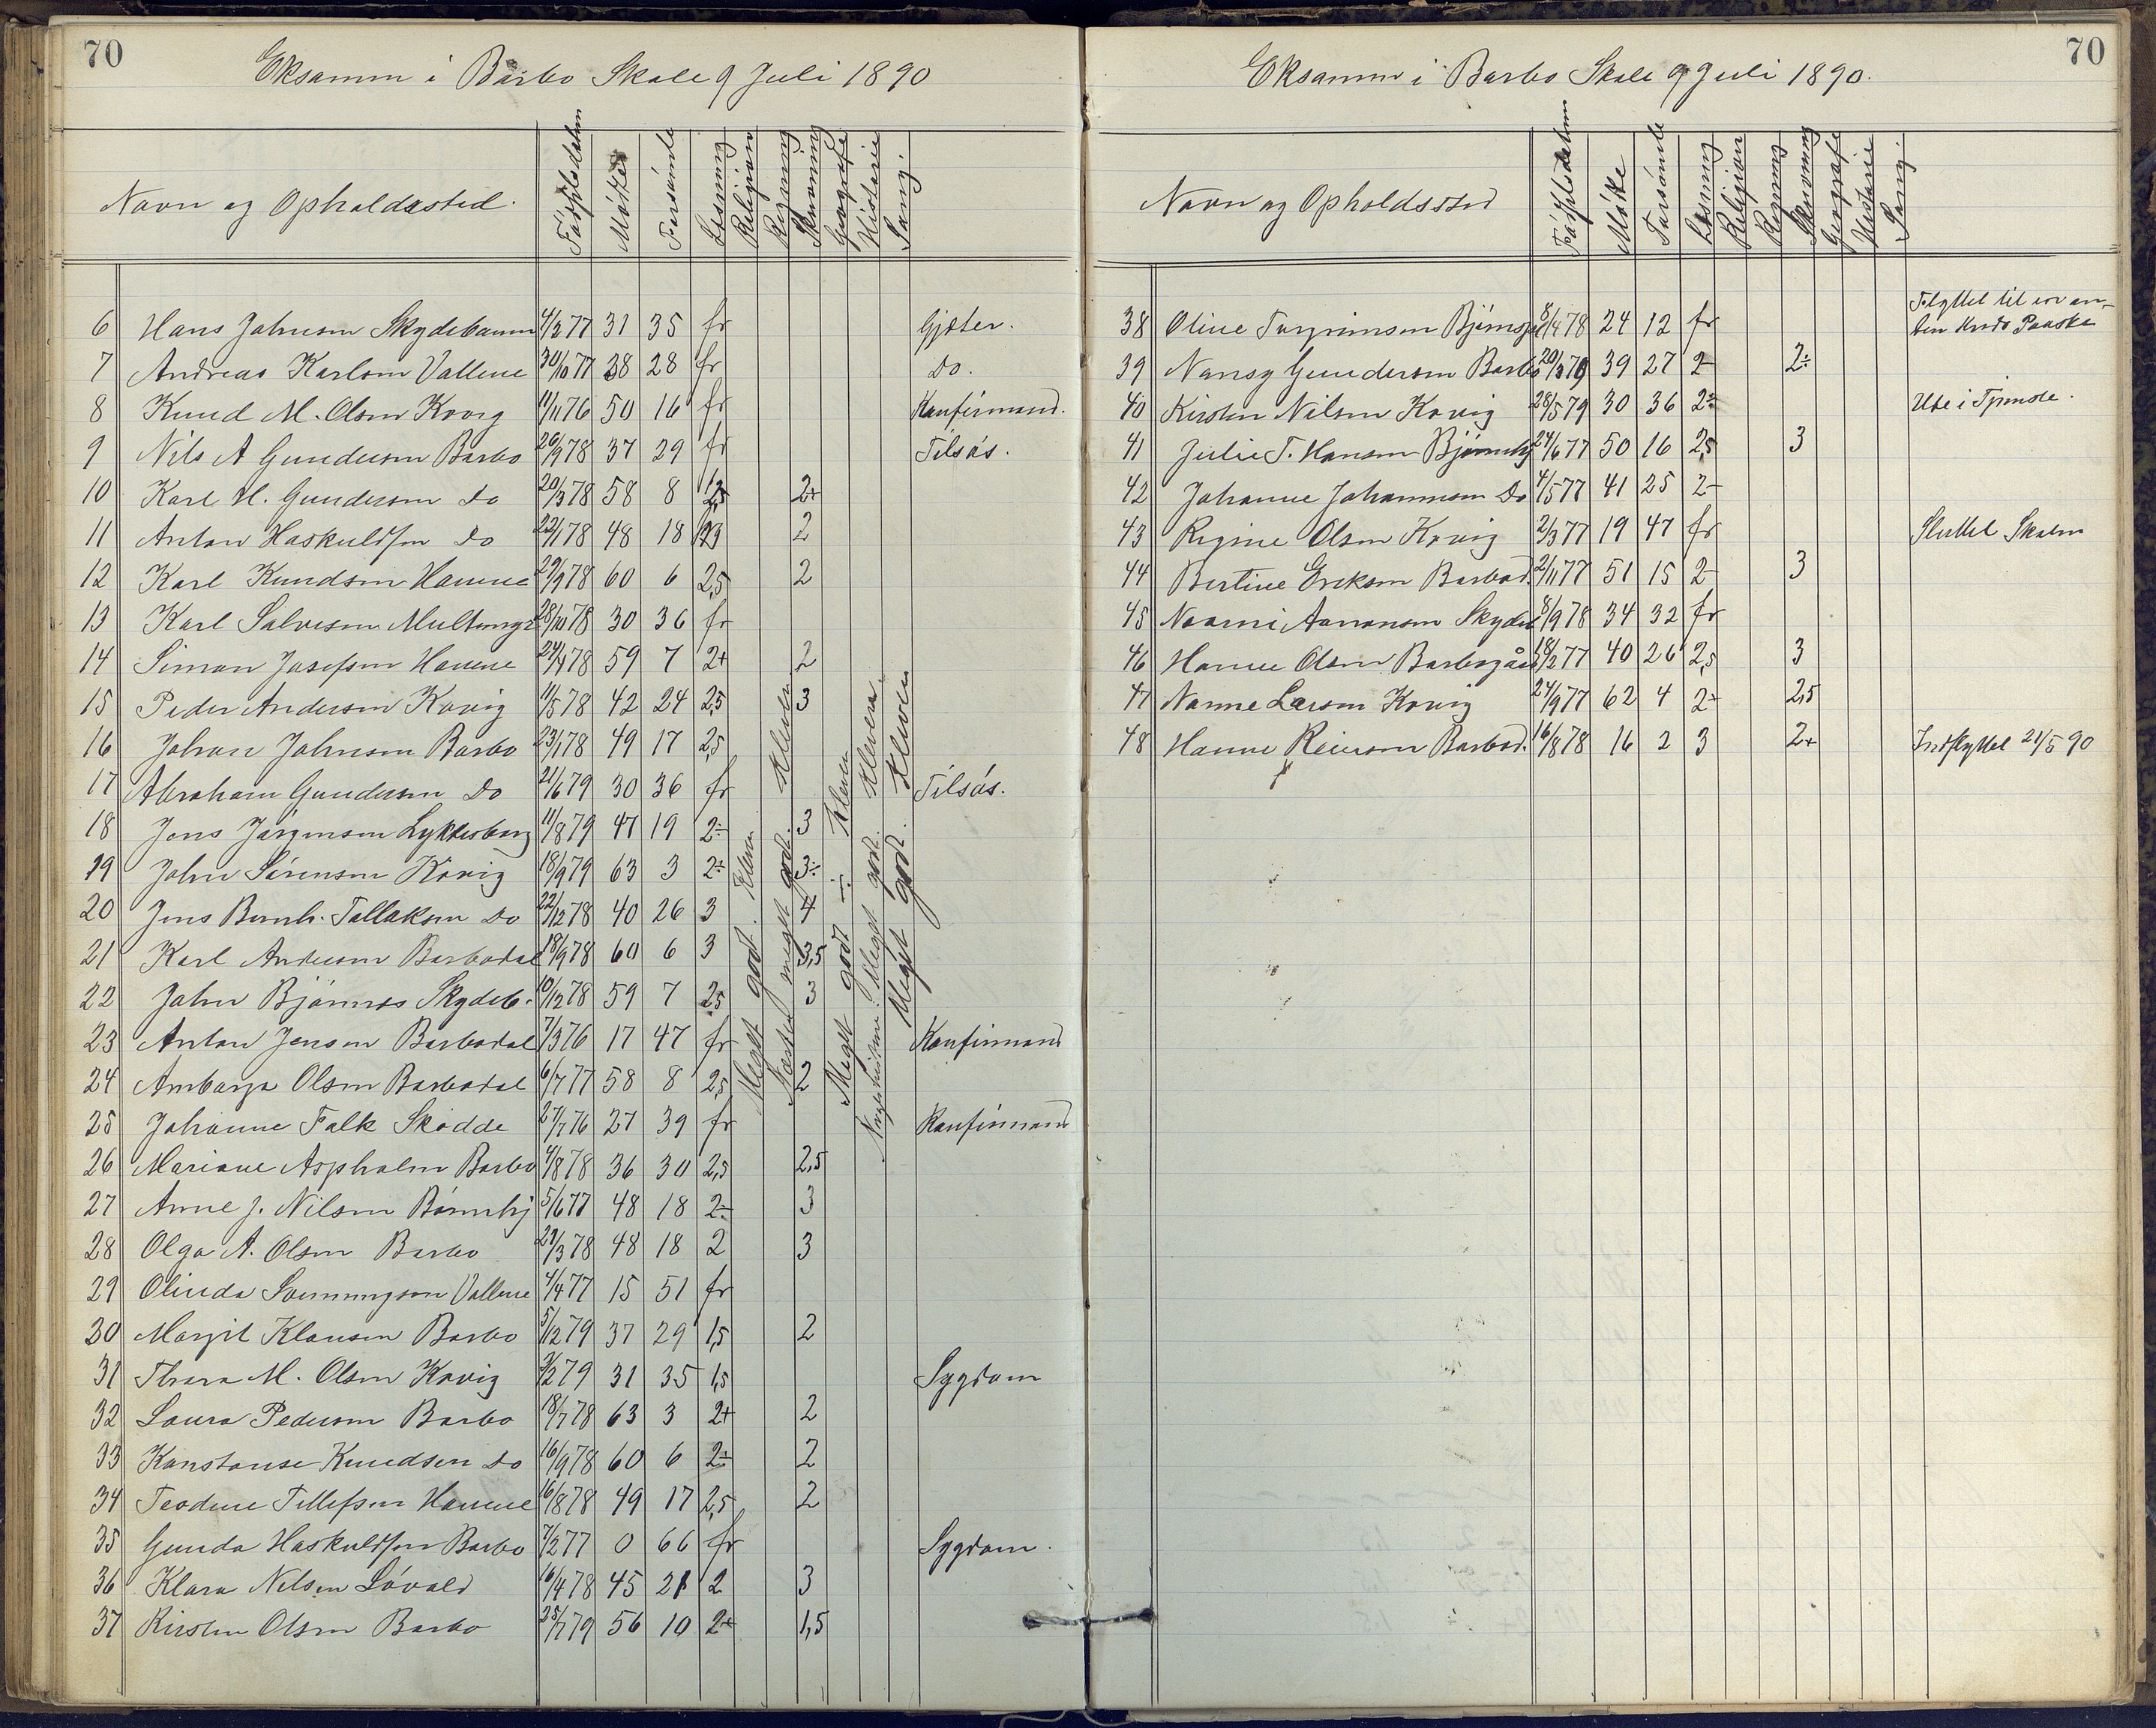 70
Eksamen i Barbo Skole 9 Juli 1890
Navn og Opholdssted. Fødselsdatum Møtte Forsømte Læsning Religion Regning Skrivning Geografi Historie Sang.
6 Hans Johnsen Skydebanen 4/3 77 31 35 fr Gjæter.
7 Andreas Karlsen Vallene 30/10 77 38 28 fr Do.
8 Knud M. Olsen Kovig 11/11 76 50 16 fr Konfirmand.
9 Nils A Gundersen Barbo 26/9 78 37 29 fr Tilsøs.
10 Karl H. Gundersen Do 20/3 78 58 8 2,5 2+
11 Anton Haskuldsen Do 22/1 78 48 18 2
12 Karl Knudsen Havene 29/9 78 60 6 2,5 2
13 Karl Salvesen 28/10 78 30 36 fr
14 Simon Josefsen Havene 24/4 78 59 7 2+ 2
15 Peder Andersen Kovig 11/5 78 42 24 2,5 3
16 Johan Johnsen Barbo 23/1 78 49 17 2,5
17 Abraham Gundersen Do 21/6 79 30 36 fr Tilsøs.
18 Jens Jørgensen Lyktesborg 11/8 79 47 19 2÷ 3
19 John Sørensen Kovig 18/9 79 63 3 2÷ 3÷
20 Jens Bernh. Tallaksen Do 22/12 78 40 26 3 4
21 Karl Andersen Barbodal 18/9 78 60 6 3 3,5
22 John Bjønnes Skydeb. 10/12 78 59 7 2,5 3
23 Anton Jensen Barbodal 7/3 76 17 47 fr Konfirmand
24 Amborga Olsen Barbodal 6/7 77 58 8 2,5 2
25 Johanne Falk Skodde 27/7 76 27 39 fr Konfirmand
26 Mariane Aspholm Barbo 4/8 78 36 30 2,5 2,5
27 Anne J. Nilsen 5/6 77 48 18 2÷ 3
28 Olga A. Olsen Barbo 29/3 78 48 18 2 3
29 Olinda Svenningsen Vallene 4/4 77 15 51 fr
30 Margit Klausen Barbo 5/12 79 37 29 1,5 2
31 Thora M. Olsen Kovig 3/2 79 31 35 1,5 Sygdom
32 Laura Pedersen Barbo 18/7 78 63 3 2+ 2
33 Konstanse Knudsen Do 16/9 78 60 6 2÷ 2
34 Teodine Tellefsen Havene 16/8 78 49 17 2,5 2
35 Gunda Haskuldsen Barbo 7/2 77 0 66 fr Sygdom.
36 Klara Nilsen Løvold 16/4 78 45 21 2 3
37 Kirsten Olsen Barbo 25/7 79 56 10 2+ 1,5
Meget godt. Kleven
Næsten meget godt. Kleven
Meget godt ÷. Kleven
Meget godt. Kleven
Meget godt. Kleven
70
Eksamen i Barbo Skole 9 Juli 1890.
Navn og Opholdssted Fødselsdatum Møtte Forsømte Læsning Religion Regning Skrivning Geografi Historie Sang.
38 Oline Torgrimsen 8/4 78 24 12 fr Flyttet til en an-
den Kreds Paaske
39 Nansy Gundersen Barbo 20/3 79 39 27 2- 2÷
40 Kirsten Nilsen Kovig 28/5 79 30 36 2÷ Ude i Tjeneste.
41 Julie T. Hansen 24/6 77 50 16 2,5 3
42 Johanne Johannesen Do 4/5 77 41 25 2-
43 Regine Olsen Kovig 2/3 77 19 47 fr Sluttet Skolen
44 Bertine Eriksen Barbod. 2/11 77 51 15 2- 3
45 Naomi Aanonsen Skydeb 8/9 78 34 32 fr
46 Hanne Olsen Barbogård 18/2 77 40 26 2,5 3
47 Nanne Larsen Kovig 24/9 77 62 4 2÷ 2,5
48 Hanne Reiersen Barbod. 16/8 78 16 2 3 2+ Indflyttet 21/5 90